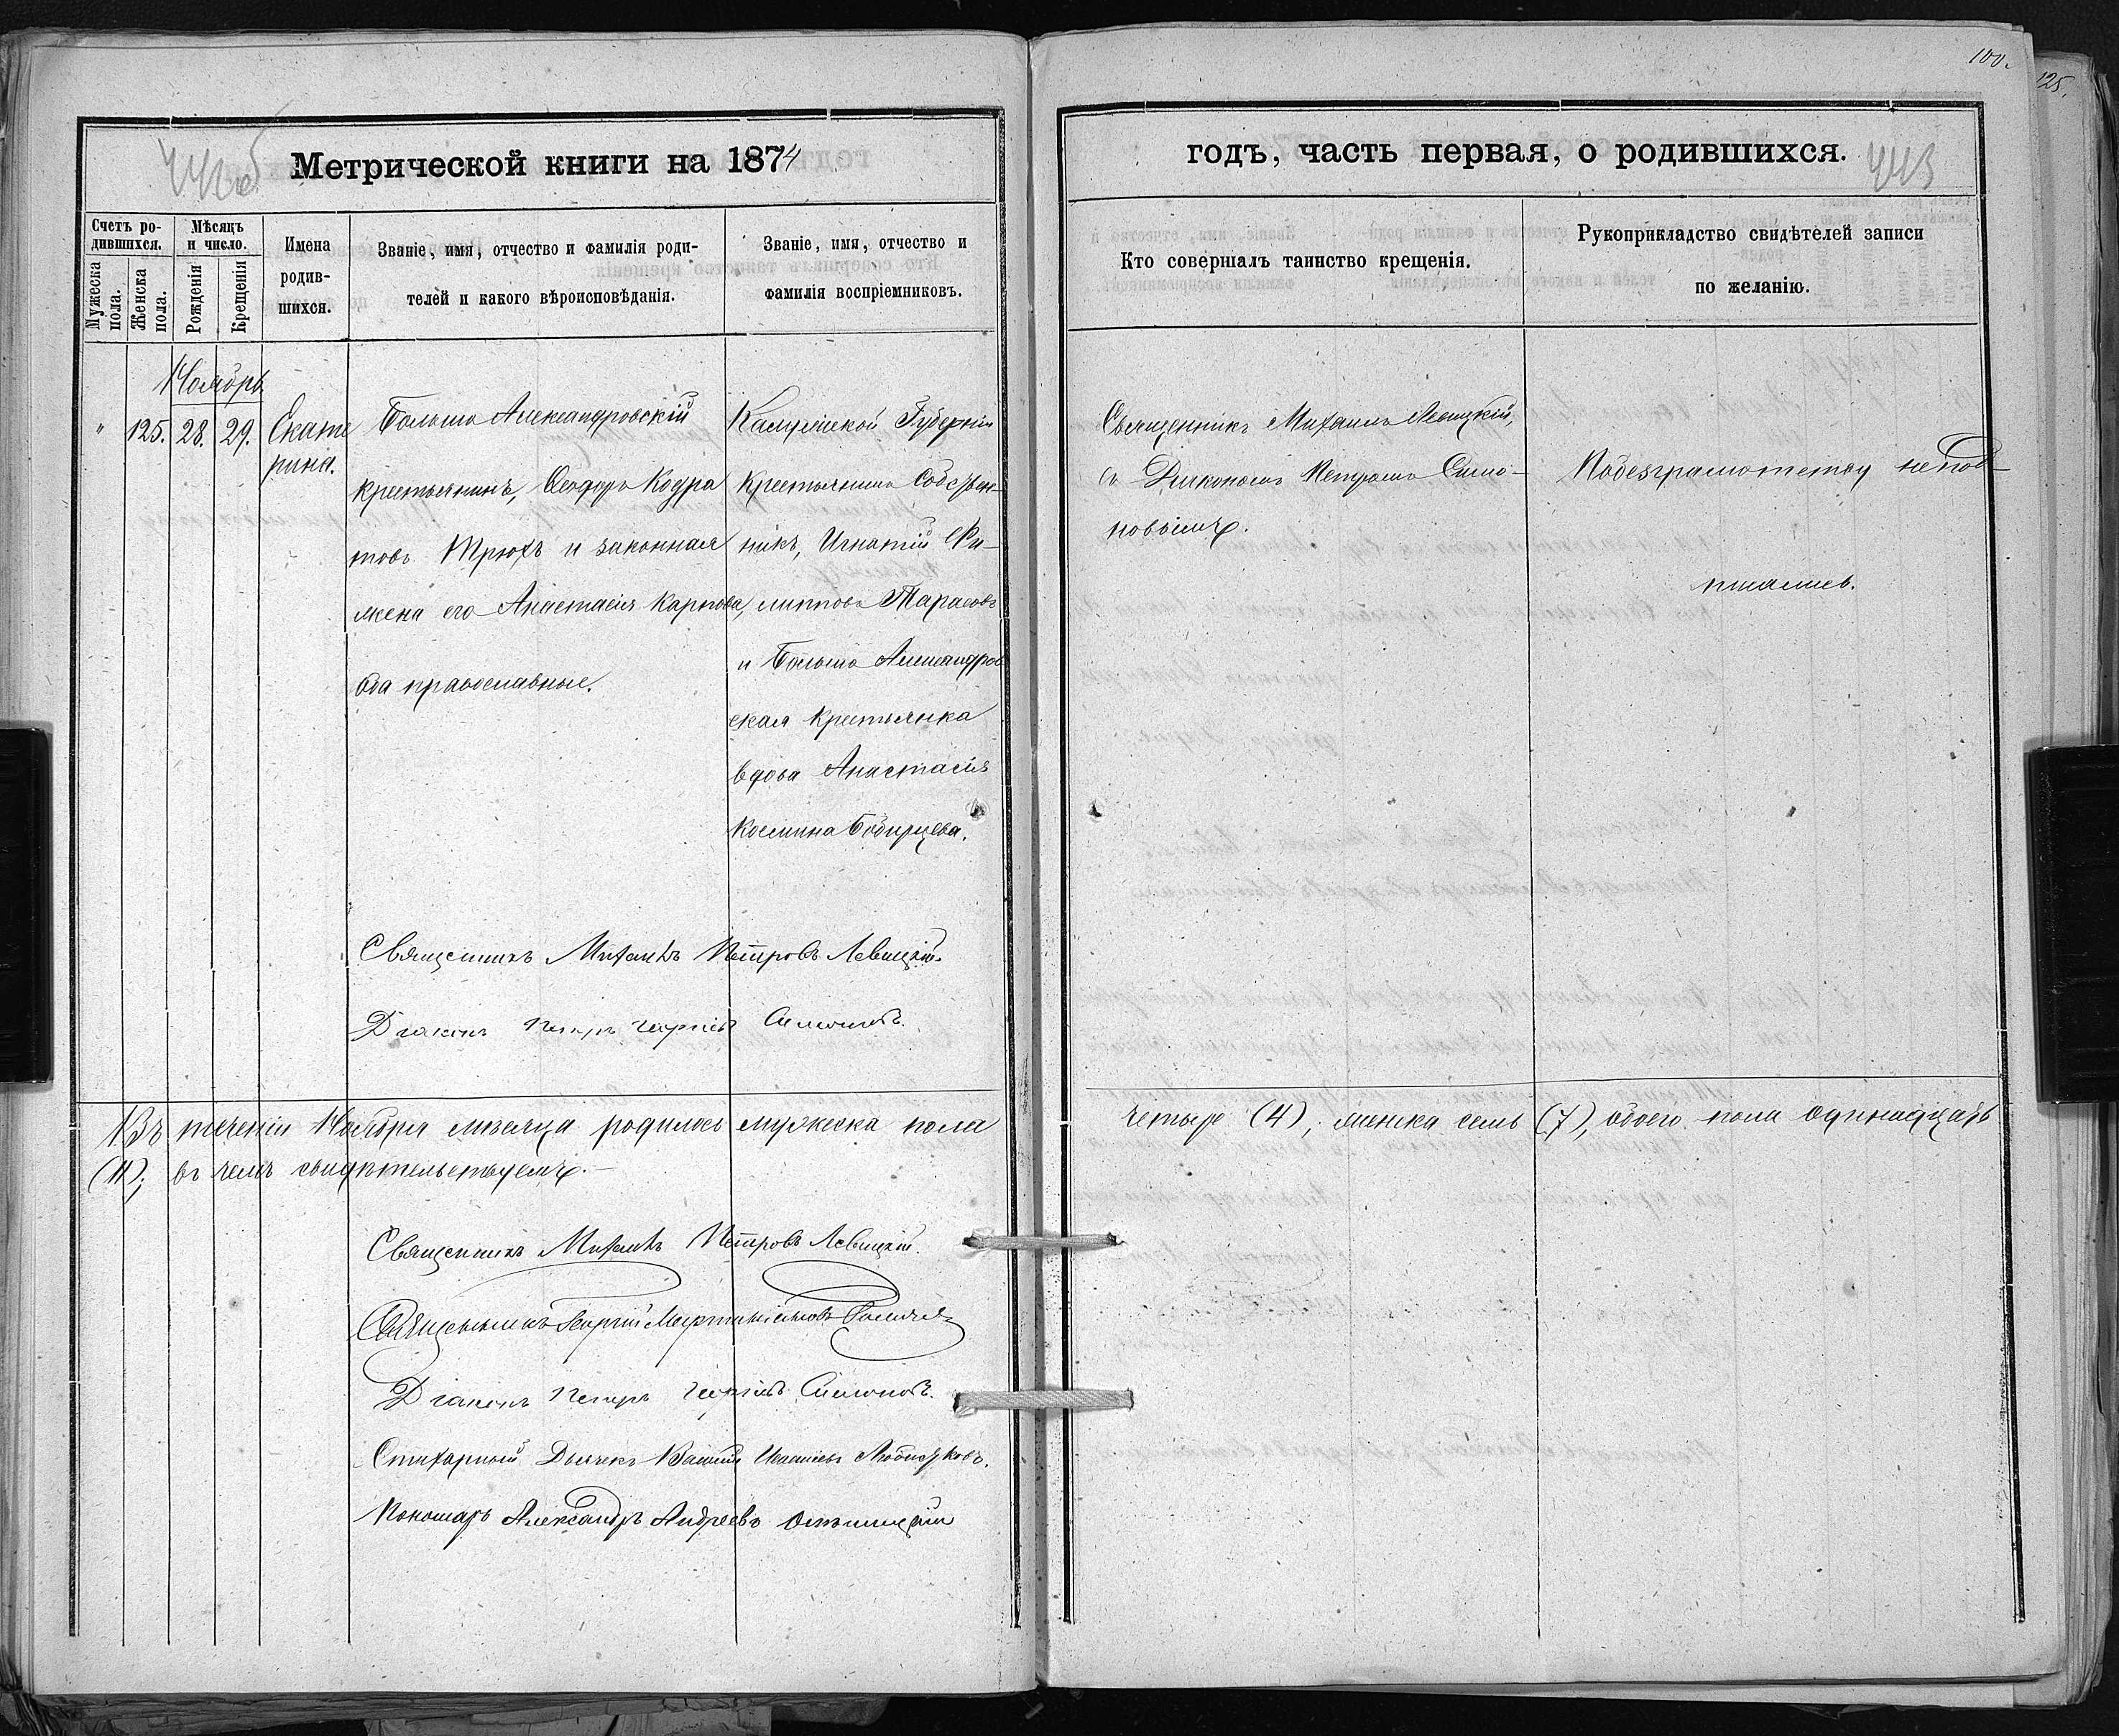 100.
125.
Метрической книги на 1874
годъ, часть первая, о родившихся.
Счетъ ро-
дившихся.
Мужеска
пола.
Женска
пола.
Мѣсяцъ
и число.
Рожденія
Крещенія
Имена
родив-
шихся.
Званіе, имя, отчество и фамилія роди-
телей и какого вѣроисповѣданія.
Званіе, имя, отчество и
фамилія воспріемниковъ.
Кто совершалъ таинство крещенія.
Рукоприкладство свидѣтелей записи
по желанію.
Ноябрь
" 125. 28. 29.
Екате
рина.
Больше Александровскій
крестьянинъ, Ѳеодоръ Кодра
товъ Трюхъ и законная
жена его Анастасія Карпова,
оба православные.
Калужской Губерніи
Крестьянинъ Собствен-
никъ, Игнатій Фи-
липповъ Тарасовъ
и Больше Александров
ская крестьянка
вдова Анастасія
Космина
Священникъ Михаилъ Левицкій,
съ Діакономъ Петромъ Симо-
новымъ.
По безграмотству не под-
писались.
Священникъ Михаилъ Петровъ Левицкій.
Діаконъ Петръ Георгіевъ Симоновъ.
Въ теченіи Ноября мѣсяца родилось мужеска пола
четыре (4), женска семь (7), обоего пола одинадцать
(11); въ чемъ свидѣтельствуемъ.
Священникъ Михаилъ Петровъ Левицкій.
Священникъ Георгій
Діаконъ Петръ Георгіевъ Симоновъ.
Стихарный Дьячекъ
Пономарь Александръ Андреевъ